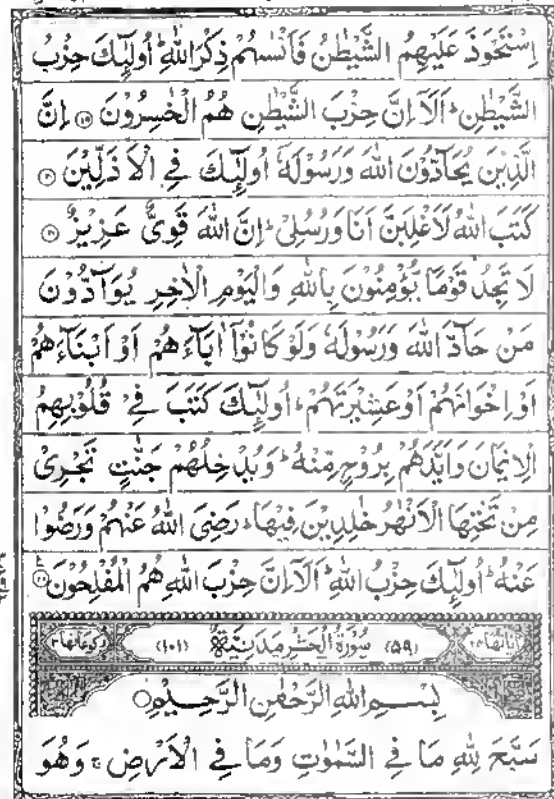 اِسْتَحْوَذَ عَلَيْهِمُ الشَّيْطٰنُ فَاَنْسٰىهُمْ ذِكْرَ اللّٰهِ ؕ اُولٰٓئِكَ حِزْبُ
الشَّيْطٰنِ ؕ اَلَاۤ اِنَّ حِزْبَ الشَّيْطٰنِ هُمُ الْخٰسِرُوْنَ ۝۱۹ اِنَّ
الَّذِيْنَ يُحَآدُّوْنَ اللّٰهَ وَرَسُوْلَهٗۤ اُولٰٓئِكَ فِى الْاَذَلِّيْنَ ۝۲۰
كَتَبَ اللّٰهُ لَاَغْلِبَنَّ اَنَا وَرُسُلِىْ ؕ اِنَّ اللّٰهَ قَوِىٌّ عَزِيْزٌ ۝۲۱
لَا تَجِدُ قَوْمًا يُّؤْمِنُوْنَ بِاللّٰهِ وَالْيَوْمِ الْاٰخِرِ يُوَآدُّوْنَ
مَنْ حَآدَّ اللّٰهَ وَرَسُوْلَهٗ وَلَوْ كَانُوْۤا اٰبَآءَهُمْ اَوْ اَبْنَآءَهُمْ
اَوْ اِخْوَانَهُمْ اَوْ عَشِيْرَتَهُمْ ؕ اُولٰٓئِكَ كَتَبَ فِىْ قُلُوْبِهِمُ
الْاِيْمَانَ وَاَيَّدَهُمْ بِرُوْحٍ مِّنْهُ ؕ وَيُدْخِلُهُمْ جَنّٰتٍ تَجْرِىْ
مِنْ تَحْتِهَا الْاَنْهٰرُ خٰلِدِيْنَ فِيْهَا ؕ رَضِىَ اللّٰهُ عَنْهُمْ وَرَضُوْا
عَنْهُ ؕ اُولٰٓئِكَ حِزْبُ اللّٰهِ ؕ اَلَاۤ اِنَّ حِزْبَ اللّٰهِ هُمُ الْمُفْلِحُوْنَ ۝۲۲
اٰيَاتُهَا ۲۴ (۵۹) سُوْرَةُ الْحَشْرِ مَدَنِيَّةٌ (۱۰۱) رُكُوْعَاتُهَا ۳
بِسْمِ اللّٰهِ الرَّحْمٰنِ الرَّحِيْمِ ۝
سَبَّحَ لِلّٰهِ مَا فِى السَّمٰوٰتِ وَمَا فِى الْاَرْضِ ۚ وَهُوَ